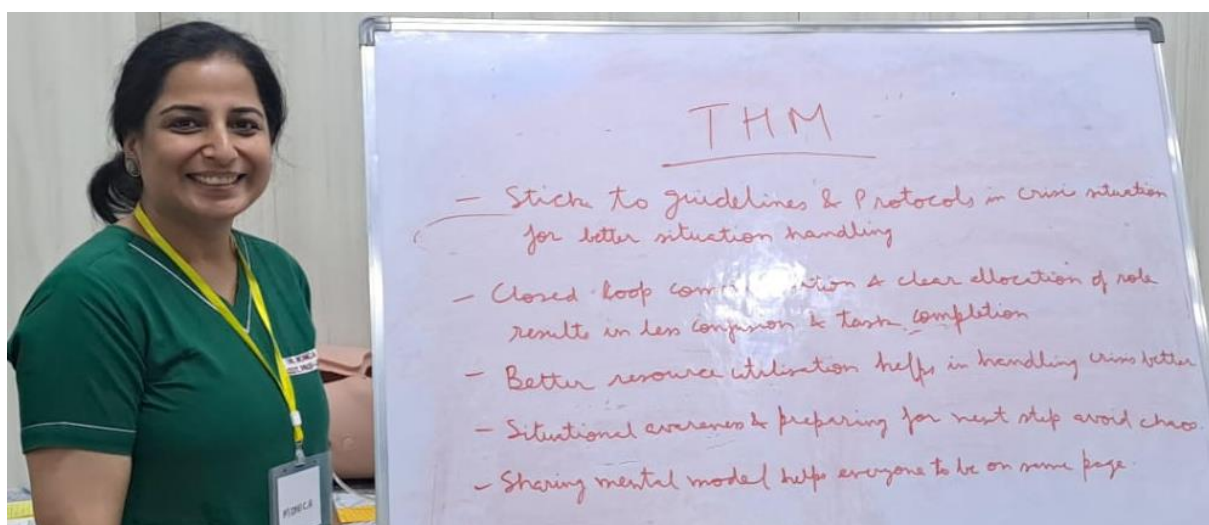 THM
- Stick to guidelines & Protocols in crisi situation
for better situation handling
- Closed loop & clear allocation of role
results in less confusion & task completion
- Better resource utilisation helps in handling crisis better
- Situational awareness & preparing for next step avoid chaos.
- Sharing mental model helps everyone to be on same page.
MONICA